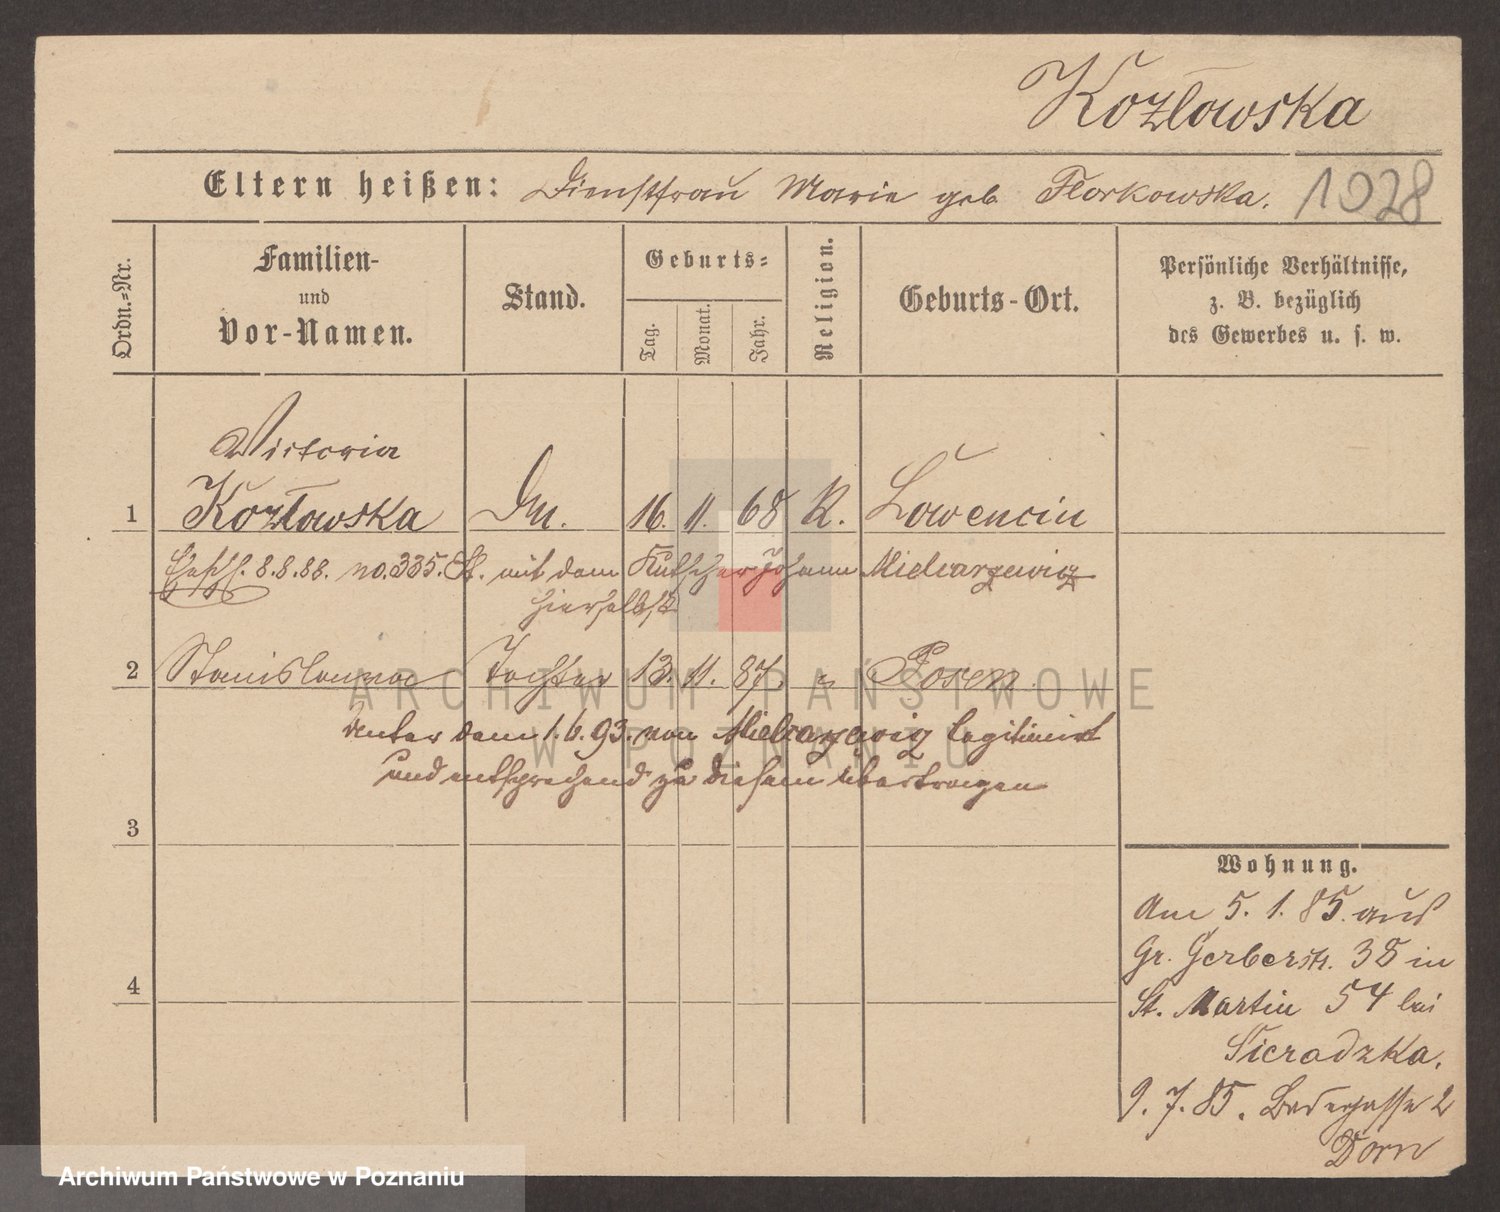 Kozłowska
Eltern heißen: Dienstfrau Marie geb Florkowska.
1028
Ordn.=Nr.
Familien-
und
Vor-Namen.
Stand.
Geburts=
Tag.
Monat.
Jahr.
Religion.
Geburts-Ort.
Persönliche Verhältnisse,
z. B. bezüglich
des Gewerbes u. s. w.
Victoria
1 Kozłowska Dn. 16. 11. 68 K. Lowencin
Ehesch. 8.8.88. no. 335. St. mit dem Kutscher Johann Mielcarzewicz
hierselbst
2 Stanislawa Tochter 13. 11. 87. " Posen
unter dem 1.6.93. von Mielcarzewicz legitimirt
und entsprechend zu diesem übertragen
3
4
Wohnung.
Am 5. 1. 85. aus
Gr. Gerberstr. 38 in
St. Martin 54 bei
Sieradzka.
9. 7. 85. Badegasse 2
Dorn
ARCHIWUM PAŃSTWOWE
W POZNANIU
Archiwum Państwowe w Poznaniu